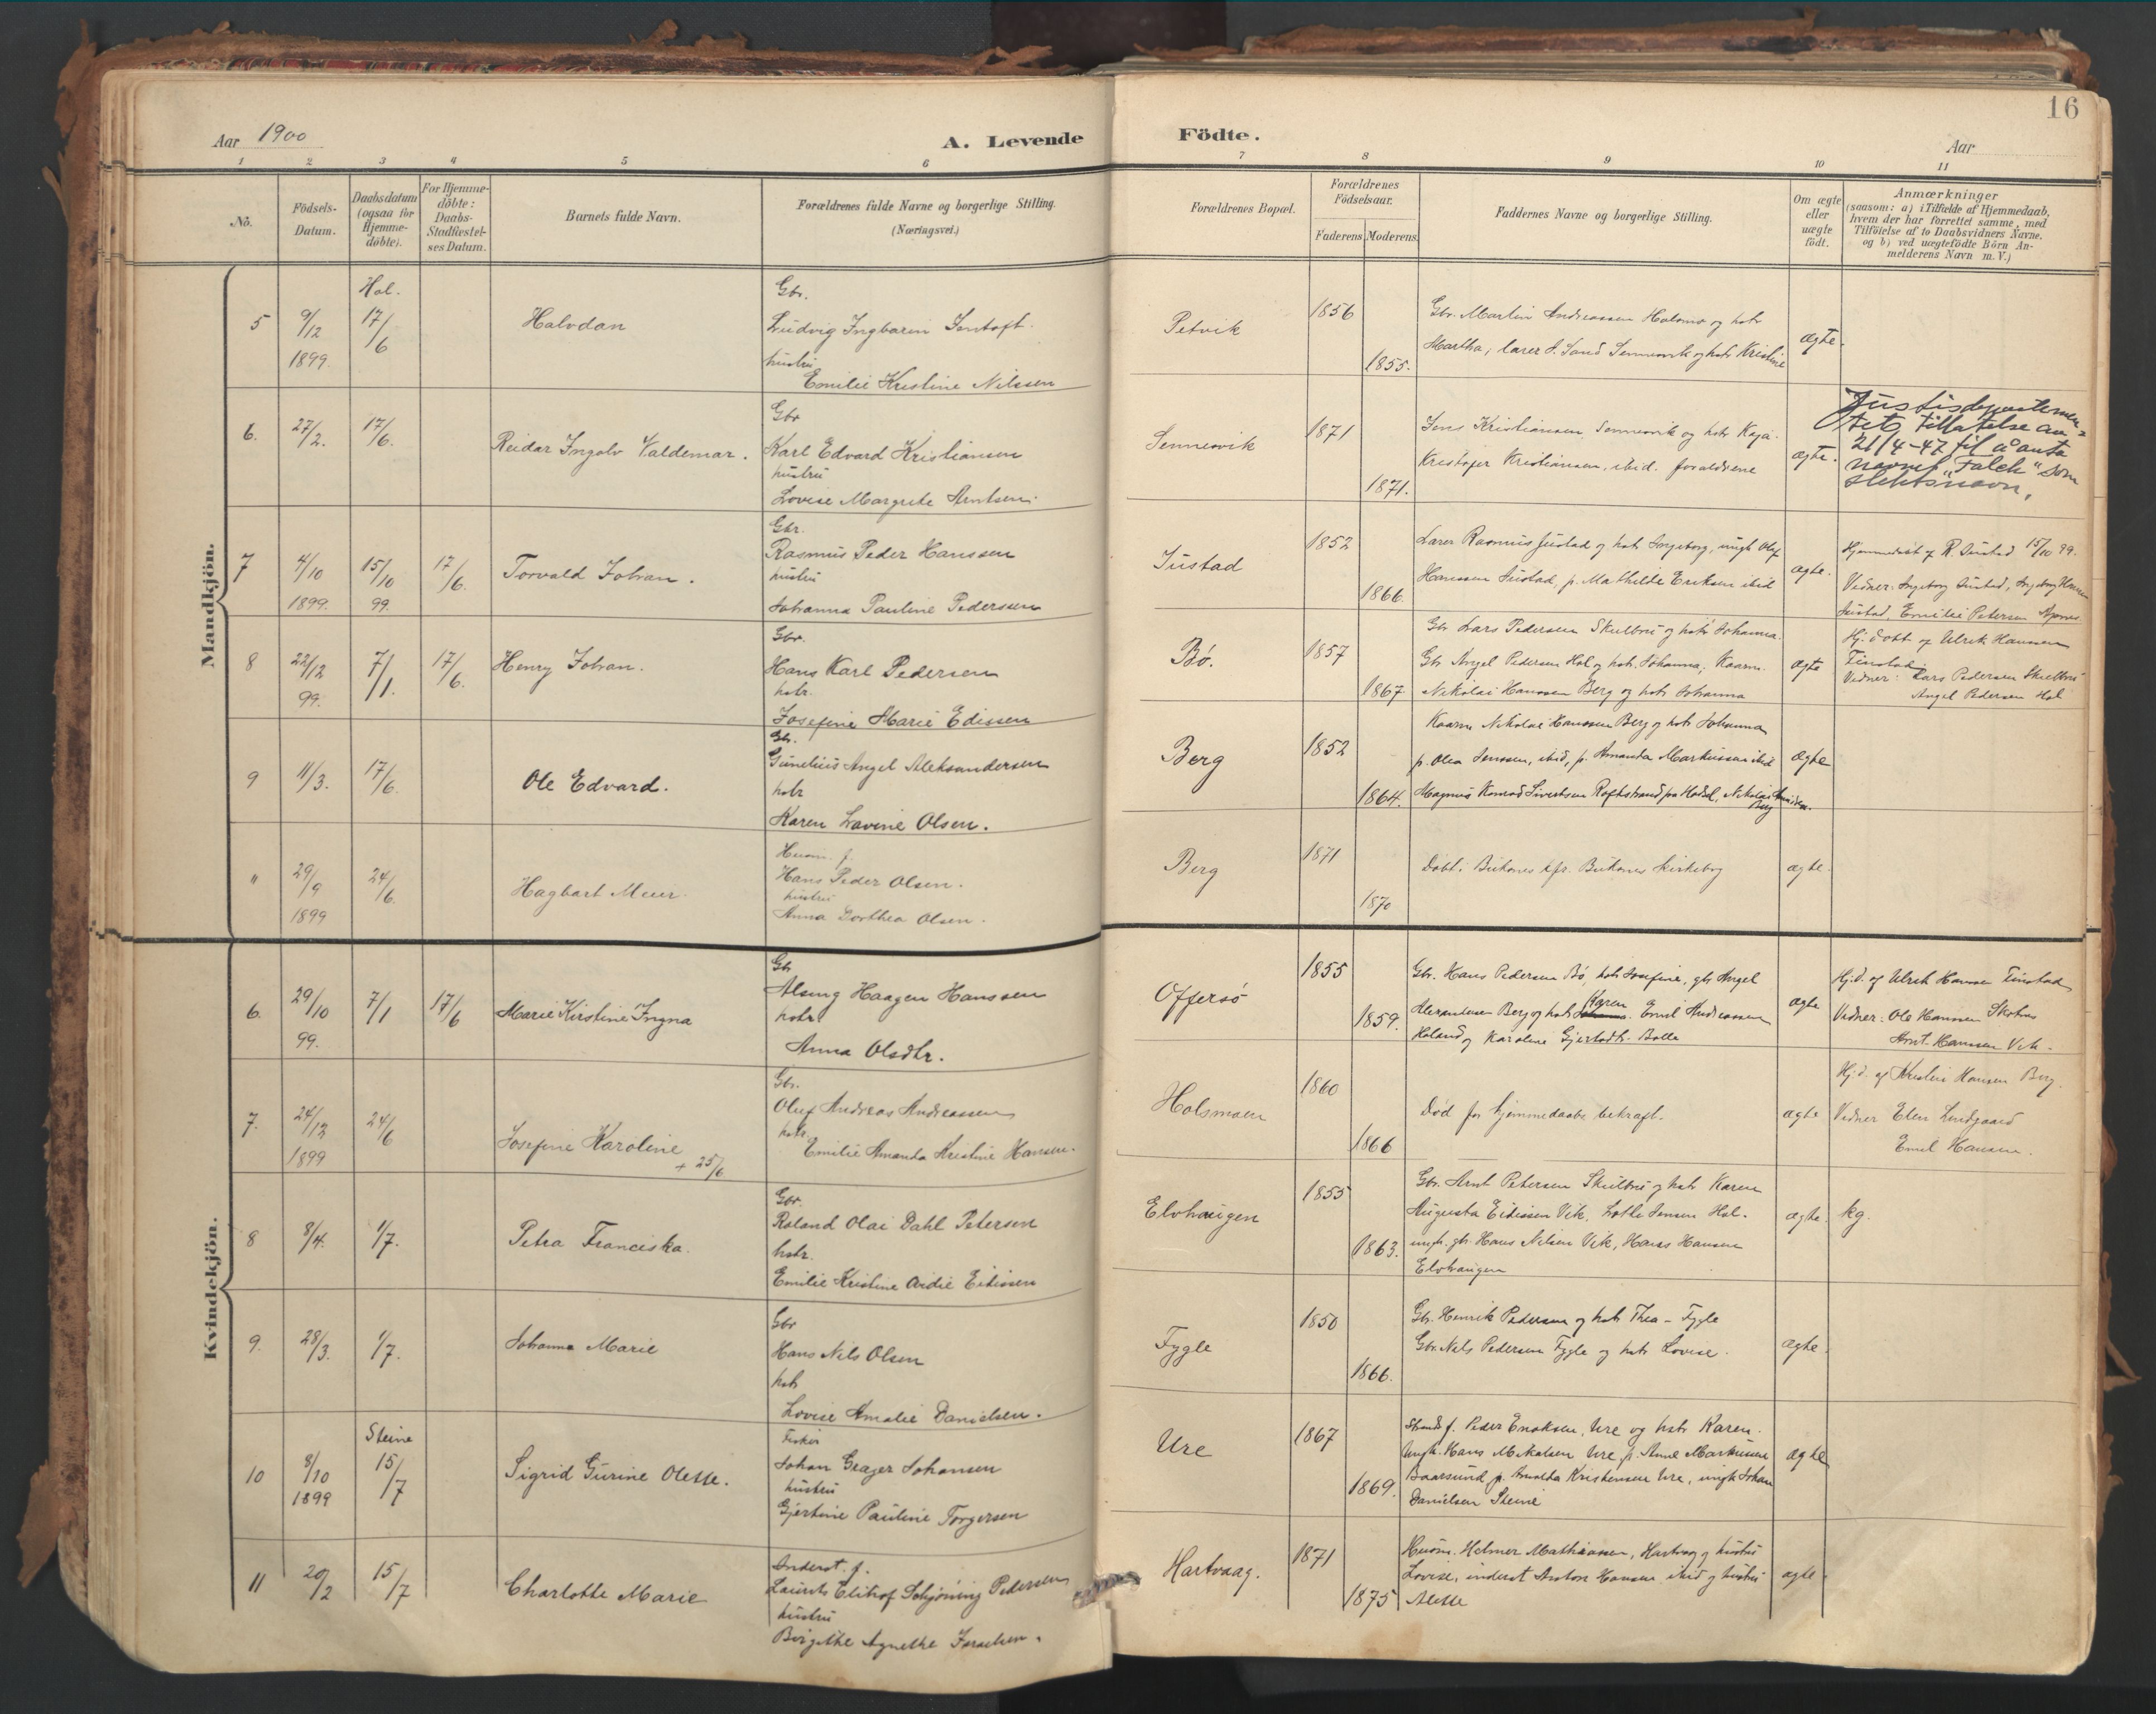 16
Aar 1900
A. Levende
Födte.
Aar
1 2 3 4 5 6 7 8 9 10 11
No.
Födsels-
Datum.
Daabsdatum
(ogsaa for
Hjemme-
döbte).
For Hjemme-
döbte:
Daabs-
Stadfæstel-
ses Datum.
Barnets fulde Navn.
Forældrenes fulde Navne og borgerlige Stilling.
(Næringsvei.)
Forældrenes Bopæl.
Forældrenes
Födselsaar.
Faderens Moderens
Faddernes Navne og borgerlige Stilling.
Om ægte
eller
uægte
födt.
Anmærkninger
(saasom: a) i Tilfælde af Hjemmedaab,
hvem der har forrettet samme, med
Tilföielse af to Daabsvidners Navne,
og b) ved uægtefödte Börn An-
melderens Navn m. V.)
Mandkjön.
Hol.
5 9/12 1899. 17/6
Halvdan
Gbr.
Ludvig Ingbarin Sentoft.
hustru
Emilie Kristine Nilssen
Petvik
1856
1855.
Gbr. Martin Andreassen Holsmo og hstr
Martha; lærer J. Sand Sennesvik og hstr Kristine
ægte.
6. 27/2. 17/6.
Reidar Ingolv Valdemar.
Gbr
Karl Edvard Kristiansen
hustru
Lovise Margrete Arntsen.
Sennesvik
1871
1871.
Jens Kristiansen Sennesvik og hstr Kaja.
Kristofer Kristiansen, ibid. forældrene
ægte.
Justisdepartemen-
tet tillatelse av
21/4-47 til å anta
navnet "Falch" som
slektsnavn.
7 4/10 1899. 15/10 99. 17/6.
Torvald Johan.
Gbr.
Rasmus Peder Hanssen
hustru
Johanna Pauline Pedersen
Justad
1852
1866.
Lærer Rasmus Justad og hstr Ingeborg, ungk Olaf
Hanssen Justad, p. Mathilde Eriksen ibid
ægte.
Hjemmedøbt af R. Justad 15/10 99.
Vidner: Ingeborg Justad, Ingeborg Hansen
Justad, Emilie Petersen
8 22/12 99. 7/1. 17/6.
Henry Johan.
Gbr.
Hans Karl Pedersen
hstr.
Josefine Marie Edissen
Bø.
1857
1867.
Gbr Lars Pedersen Skulbru og hstr Johanna.
Gbr Angel Pedersen Hol og hstr. Johanna; Kaarm.
Nikolai Hanssen Berg og hstr Johanna
ægte
Hj. døbt af Ulrik Hanssen
Finstad
Vidner: Lars Pedersen Skulbru
Angel Pedersen Hol
9 11/3. 17/6.
Ole Edvard.
Gbr.
Gunelius Angel Aleksandersen
hstr
Karen Lavine Olsen.
Berg
1852
1864.
Kaarm Nikolai Hanssen Berg og hstr Johanna
p. Olea Jenssen, ibid, p. Amanda Markussen ibid
Magnus Konrad Sivertsen Raftstrand fra Hadsel, Nikolai
Berg
ægte
" 29/9 1899 24/6.
Hagbart Meier.
Husm. f.
Hans Peder Olsen.
hustru
Anna Dorthea Olsen.
Berg
1871
1870
Døbt i Buksnes kfr. Buksnes kirkebog
ægte.
Kvindekjön.
6. 29/10 99. 7/1 17/6
Marie Kirstine Ingna
Gbr
Alsing Haagen Hanssen
hstr
Anna Olsdtr.
Offersø
1855
1859.
Gbr. Hans Pedersen Bø, hstr Josefine, gbr Angel
Alexandersen Berg og hstr Karen. Emil Andreassen
Holand og Karoline Gjertsdtr. Bolle
ægte
Hj.d. af Ulrik Hanssen Finstad
Vidner: Ole Hanssen Skotnes
Arnt Hanssen Vik.
7. 24/12 1899 24/6
Josefine Karoline
+ 25/6
Gbr.
Oluf Andreas Andreassen
hstr.
Emilie Amanda Kristine Hansen.
Holsmoen
1860
1866
Død før hjemmedaabs bekræft.
ægte
Hj.d. af Kristen Hansen Berg.
Vidner Elen Lindgaard
Emil Hansen.
8 8/4. 1/7.
Petra Franciska.
Gbr.
Roland Olai Dahl Petersen
hstr.
Emilie Kristine Avidie Eidissen
Elvhaugen
1855
1863.
Gbr. Arnt Petersen Skulbru og hstr Karen
Augusta Eidissen Vik, Lotte Jensen Hol.
ungk. gbr. Hans Nilsen Vik, Hans Hansen
Elvhaugen
ægte. kg.
9. 28/3. 1/7.
Johanna Marie
Gbr
Hans Nils Olsen
hstr
Lovise Amalie Danielsen.
Fygle
1850
1866.
Gbr. Henrik Pedersen og hstr Thea - Fygle
Gbr. Nels Pedersen Fygle og hstr Lovise.
ægte.
Steine
10 8/10 1899 15/7
Sigrid Gurine Olette.
Fisker
Johan Greger Johansen
hustru
Gjertine Pauline Torgersen
Ure
1867
1869.
Strands. f. Peder Enoksen, Ure og hstr Karen.
Ungk. Hans Mikalsen Ure, p. Anne Markussen
Baarsund p. Amalda Kristensen Ure, ungk Johan
Danielsen Steine
ægte
11 20/2 15/7
Charlotte Marie
Inderst. f.
Laurits Elihof Schjøning Pedersen
hustru
Birgithe Agnethe Israelsen.
Hartvaag.
1871
1875
Husm. Helmer Mathiassen, Hartvaag og hustru
Lovise, inderst Anton Hansen ibid og hustru
Alette
ægte.